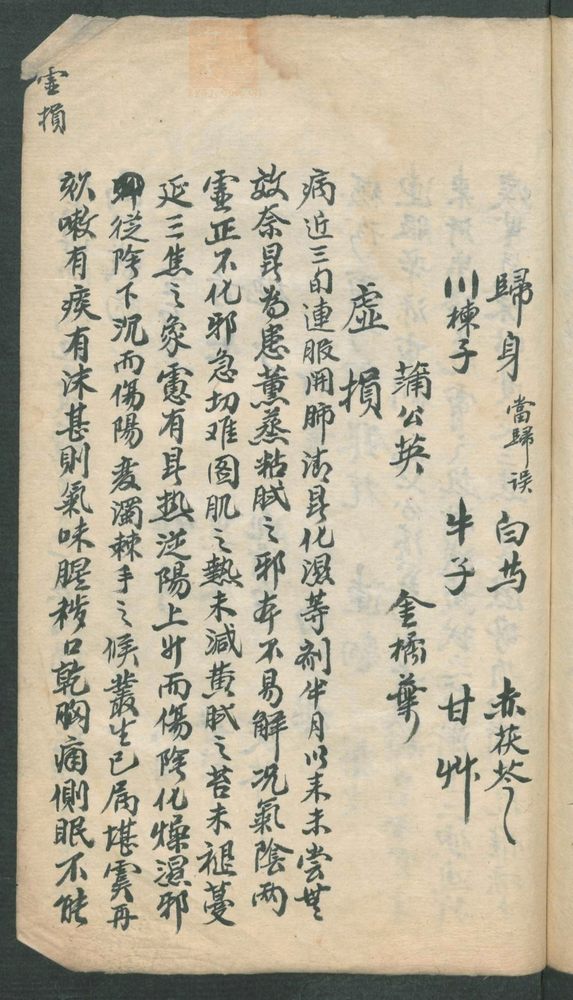 歸身 當歸误 白芍 赤茯苓
川楝子 牛子 甘艸
蒲公英 金橘葉
虛損
病近三旬連服開肺清㫷化濕等剂半月以来未尝無
效奈㫷為患薰蒸粘膩之邪本不易解况氣陰两
虛正不化邪急切难圖肌之熱未減黄膩之苔未褪蔓
延三焦之象慮有㫷热逆陽上升而傷陰化燥濕邪
從陰下沉而傷陽変濁棘手之候叢生已属堪虞再
欬嗽有痰有沫甚則氣味腥秽口乾胸痛側眠不能
虛損